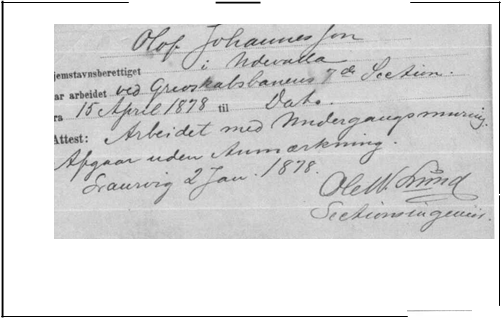 Olof Johannesson
jemstavnsberettiget i Udevalla
ar arbeidet ved Grevskabsbanens 7de Section.
ra 15 April 1878 til Dato.
Attest: Arbeidet med Undergangsmuring.
Afgaar uden Anmærkning.
Laurvig 2 Jan. 1878.
Ole W. Lund
Sectionsingeniør.